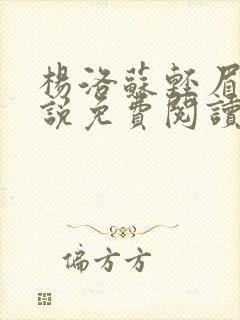 楊洛蘇輕眉
說免費閱讀
偏方方